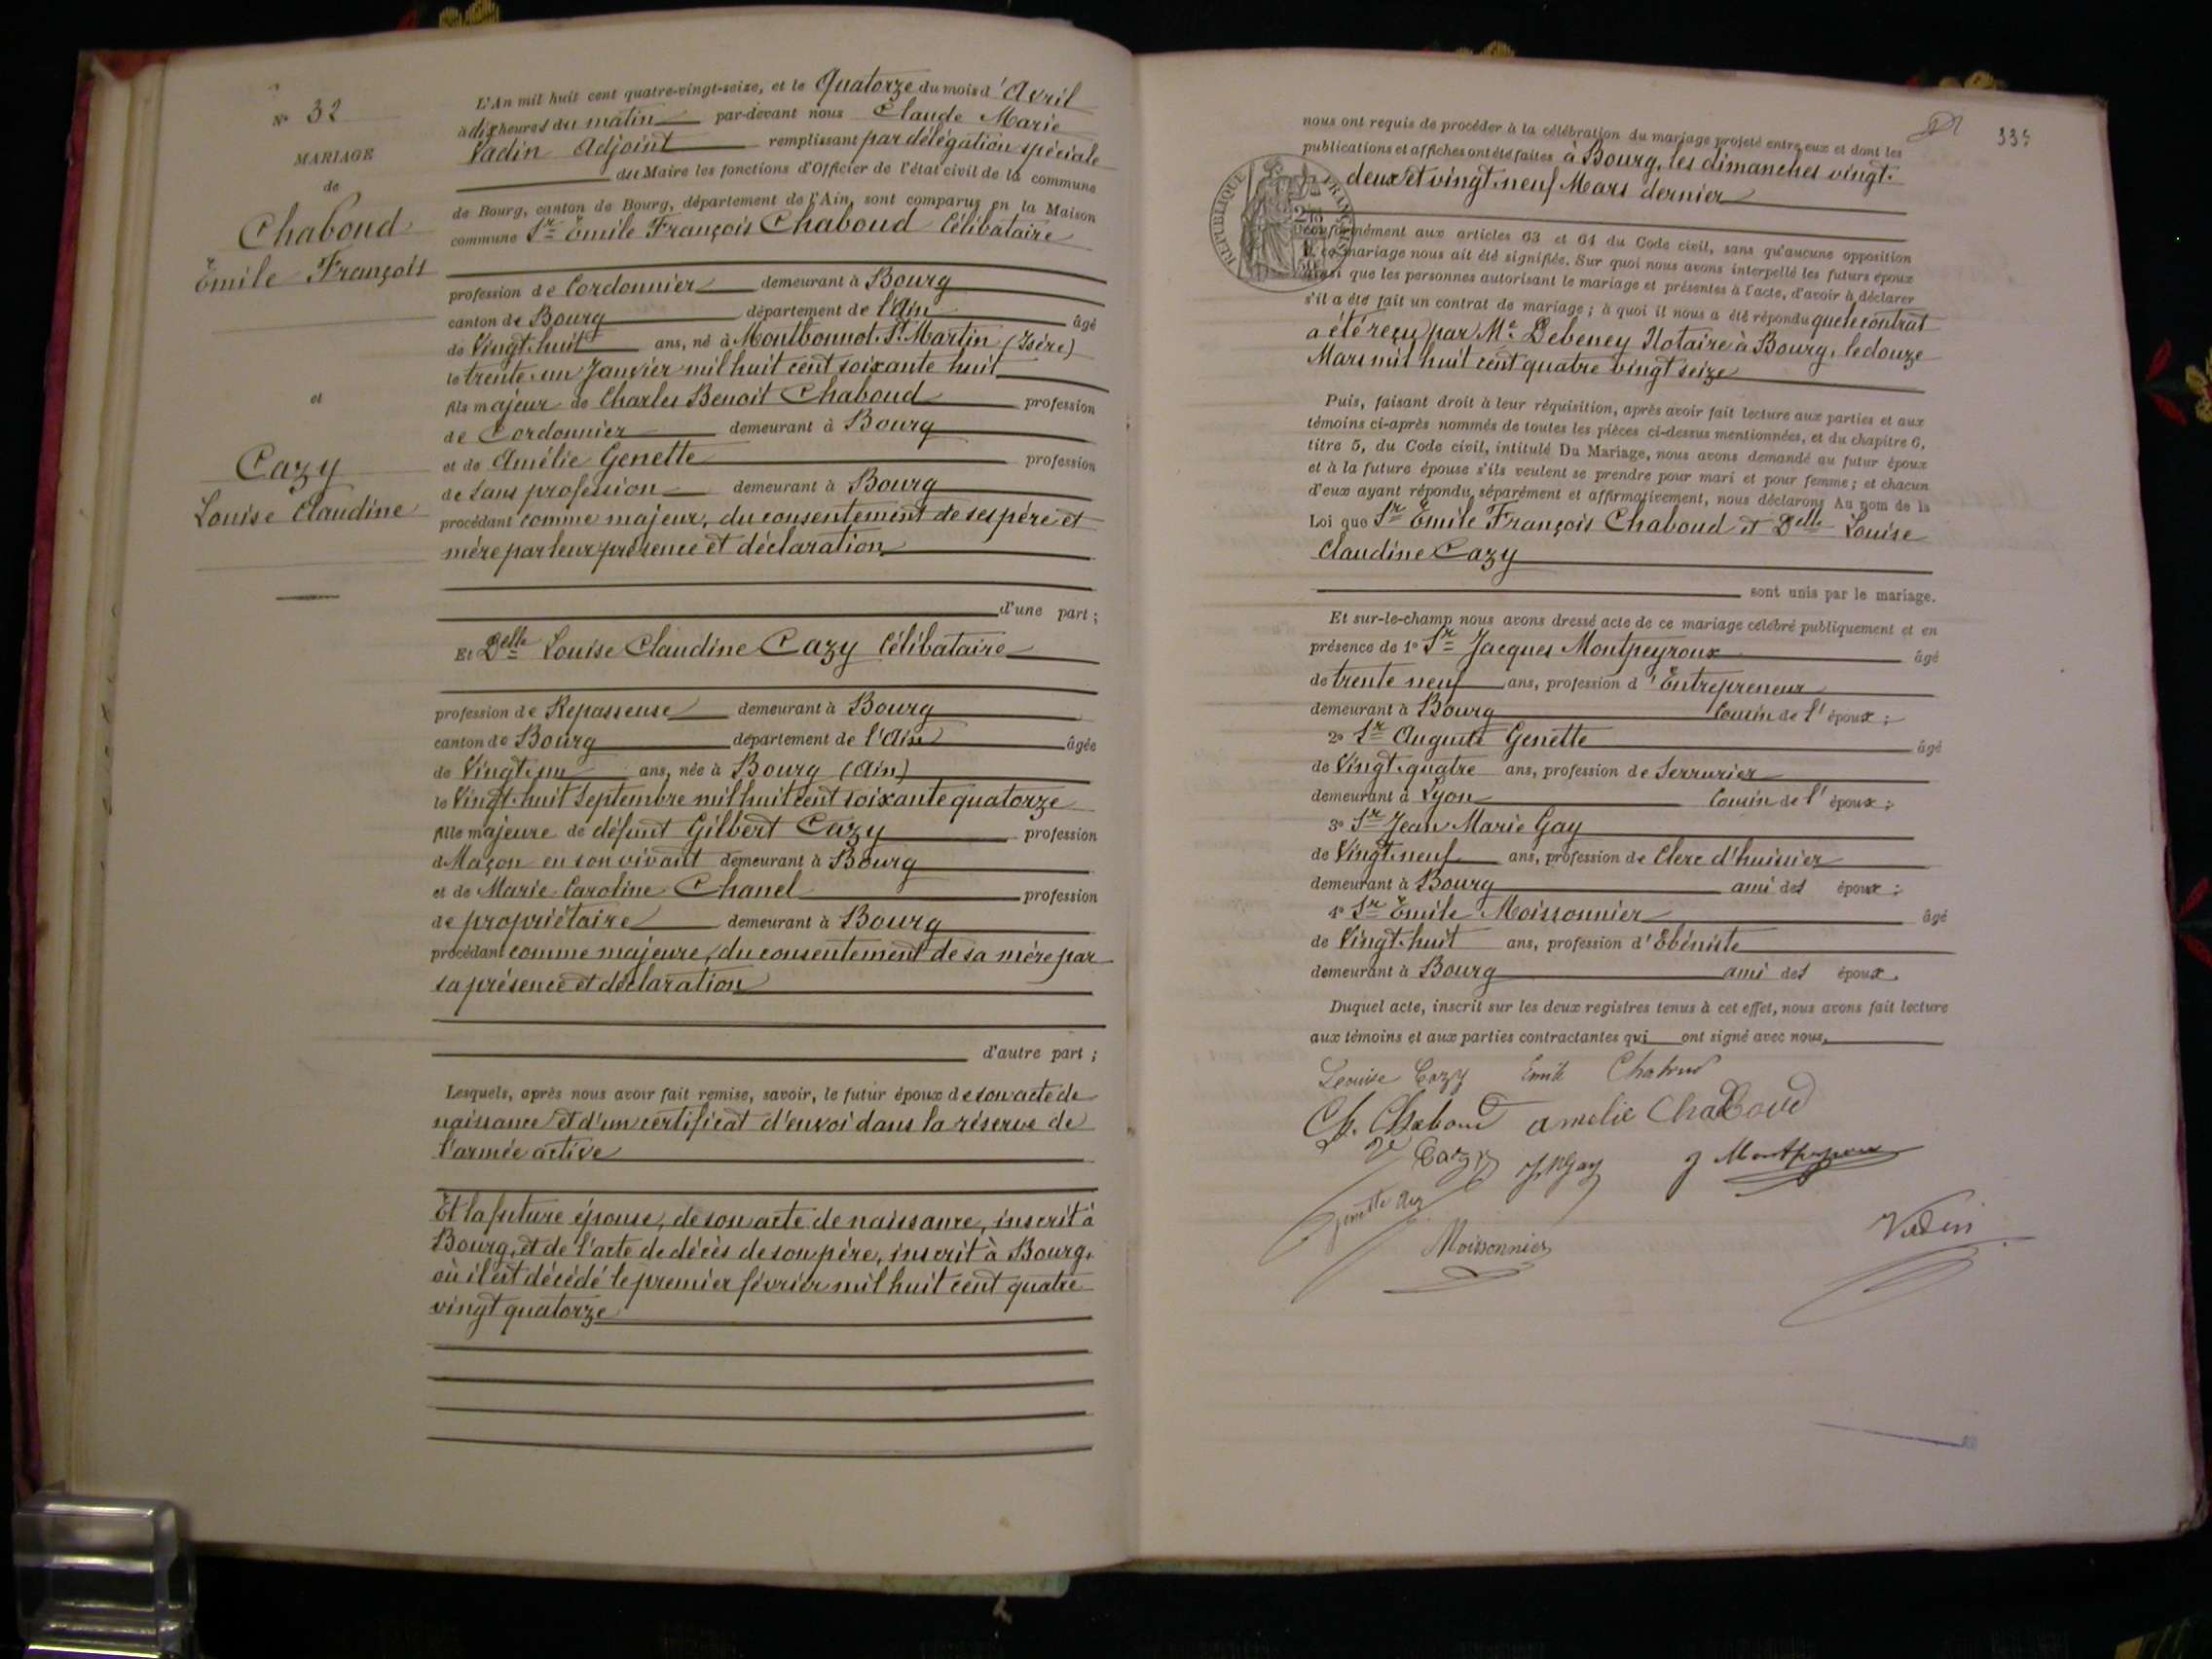 N° 32
MARIAGE
de
Chaboud
Emile François
et
Cazy
Louise Claudine
L'An mil huit cent quatre-vingt-seize, et le Quatorze du mois d'Avril
à dix heures du matin par-devant nous Claude Marie
Vadin Adjoint remplissant par délégation spéciale
du Maire les fonctions d'Officier de l'état civil de la commune
de Bourg, canton de Bourg, département de l'Ain, sont comparus en la Maison
commune Sr Emile François Chaboud Célibataire
profession de Cordonnier demeurant à Bourg
canton de Bourg département de l'Ain âgé
de Vingt-huit ans, né à Montbonnot-St-Martin (Isère)
le trente-un Janvier mil huit cent soixante huit
fils majeur de Charles Benoit Chaboud profession
de Cordonnier demeurant à Bourg
et de Amélie Genette profession
de sans profession demeurant à Bourg
procédant comme majeur, du consentement de ses père et
mère par leur présence et déclaration
d'une part ;
Et Delle Louise Claudine Cazy Célibataire
profession de Repasseuse demeurant à Bourg
canton de Bourg département de l'Ain âgée
de Vingt-un ans, née à Bourg (Ain)
le Vingt-huit Septembre mil huit cent soixante quatorze
fille majeure de défunt Gilbert Cazy profession
de Maçon en son vivant demeurant à Bourg
et de Marie Caroline Chanel profession
de propriétaire demeurant à Bourg
procédant comme majeure, du consentement de sa mère par
sa présence et déclaration
d'autre part ;
Lesquels, après nous avoir fait remise, savoir, le futur époux de son acte de
naissance et d'un certificat d'envoi dans la réserve de
l'armée active
Et la future épouse, de son acte de naissance, inscrit à
Bourg, et de l'acte de décès de son père, inscrit à Bourg,
où il est décédé le premier février mil huit cent quatre
vingt quatorze
nous ont requis de procéder à la célébration du mariage projeté entre eux et dont les
publications et affiches ont été faites à Bourg, les dimanches vingt-
deux et vingt-neuf Mars dernier
RÉPUBLIQUE FRANÇAISE
conformément aux articles 63 et 64 du Code civil, sans qu'aucune opposition
à ce mariage nous ait été signifiée. Sur quoi nous avons interpellé les futurs époux
ainsi que les personnes autorisant le mariage et présentes à l'acte, d'avoir à déclarer
s'il a été fait un contrat de mariage ; à quoi il nous a été répondu que le contrat
a été reçu par Me Debeney Notaire à Bourg, le douze
Mars mil huit cent quatre vingt seize
Puis, faisant droit à leur réquisition, après avoir fait lecture aux parties et aux
témoins ci-après nommés de toutes les pièces ci-dessus mentionnées, et du chapitre 6,
titre 5, du Code civil, intitulé Du Mariage, nous avons demandé au futur époux
et à la future épouse s'ils veulent se prendre pour mari et pour femme ; et chacun
d'eux ayant répondu séparément et affirmativement, nous déclarons Au nom de la
Loi que Sr Emile François Chaboud et Delle Louise
Claudine Cazy
sont unis par le mariage.
Et sur-le-champ nous avons dressé acte de ce mariage célébré publiquement et en
présence de 1° Sr Jacques Montpeyroux âgé
de trente neuf ans, profession d'Entrepreneur
demeurant à Bourg Cousin de l'époux ;
2° Sr Auguste Genette âgé
de Vingt-quatre ans, profession de Serrurier
demeurant à Lyon Cousin de l'époux ;
3° Sr Jean Marie Gay
de Vingt-neuf ans, profession de Clerc d'huissier
demeurant à Bourg ami des époux ;
4° Sr Emile Moissonnier âgé
de Vingt-huit ans, profession d'Ebéniste
demeurant à Bourg ami des époux.
Duquel acte, inscrit sur les deux registres tenus à cet effet, nous avons fait lecture
aux témoins et aux parties contractantes qui ont signé avec nous.
Louise Cazy Emile Chaboud
Ch. Chaboud amelie Chaboud
Ve Cazy JMGay J Montpeyroux
Genette Aug
Moissonnier
Vadin